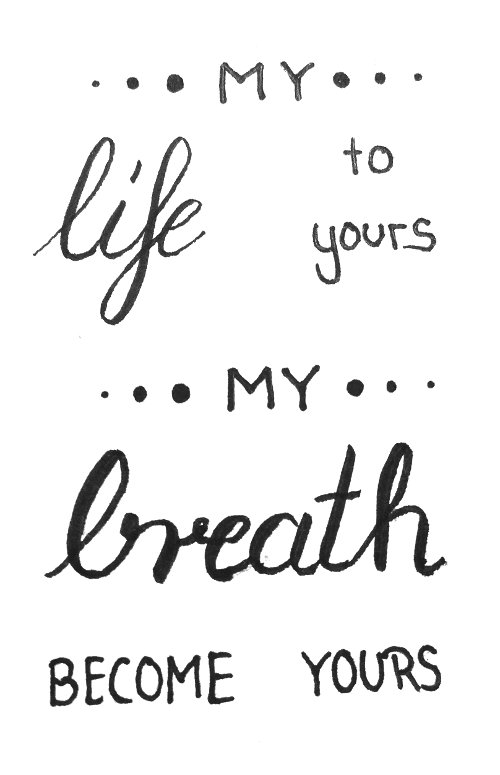 MY
life to
yours
MY
breath
BECOME YOURS